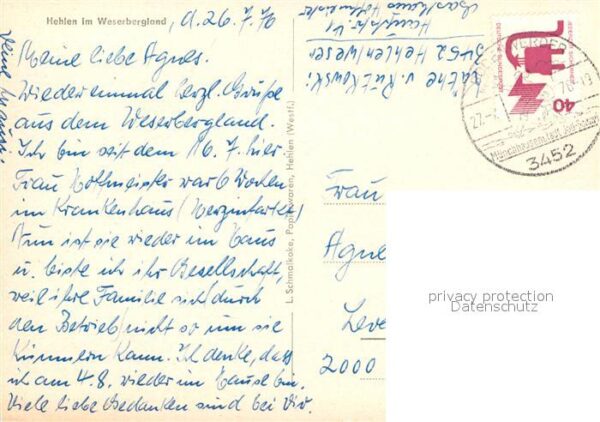 Hehlen im Weserbergland, d. 26.7.76
Meine liebe Agnes.
Wieder einmal herzl. Grüße
aus dem Weserbergland.
Ich bin seit dem 16.7. hier.
Frau Nothmeister war 6 Wochen
im Krankenhaus (Herzinfarkt)
Nun ist sie wieder im Haus
u. leiste ich ihr Gesellschaft,
weil ihre Familie sich durch
den Betrieb nicht so um sie
kümmern kann. Ich denke, dass
ich am 4.8. wieder im Hause bin.
Viele liebe Gedanken sind bei Dir.
Deine
L. Schmalkoke, Papierwaren, Hehlen (Westf.)
Käthe v.
3452 Hehlen/Weser
Hauptstr. 41
Gasthaus
DEUTSCHE BUNDESPOST
40
27.-7.76-19
3452
Frau
Agne
Leve
2000
privacy protection
Datenschutz